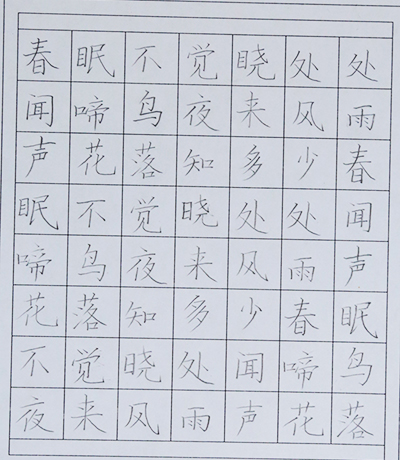 春眠不觉晓处处
闻啼鸟夜来风雨
声花落知多少春
眠不觉晓处处闻
啼鸟夜来风雨声
花落知多少春眠
不觉晓处闻啼鸟
夜来风雨声花落